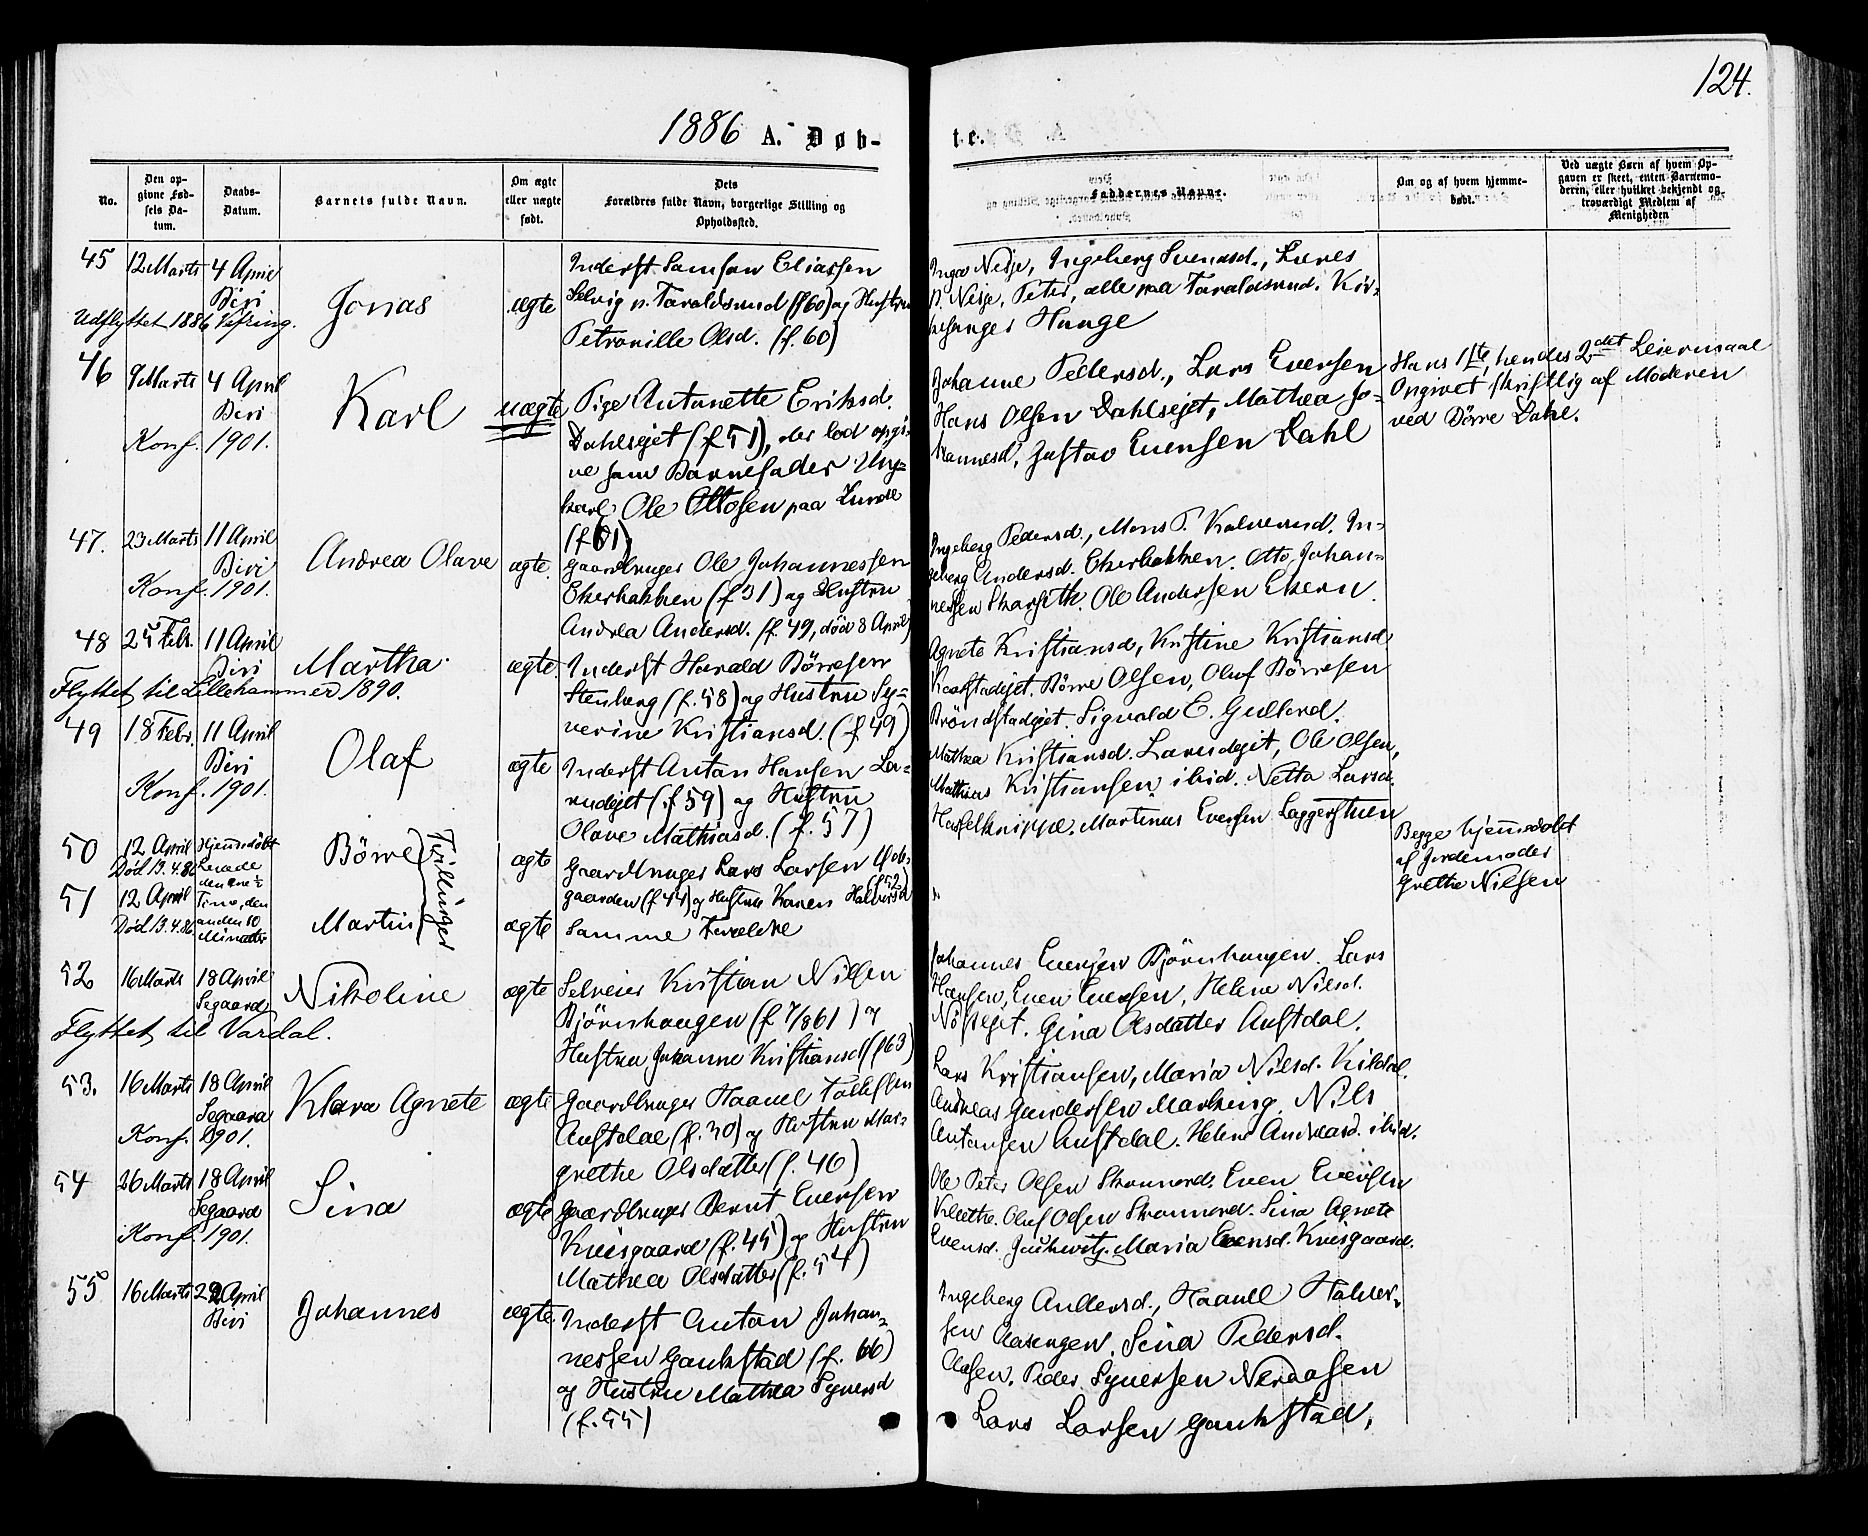 124.
1886 A. Døb-
te.
No.
Den op-
givne Fød-
sels Da-
tum.
Daabs-
Datum.
Barnets fulde Navn.
Om ægte
eller uægte
født.
Dets
Forældres fulde Navn, borgerlige Stilling og
Opholdssted.
Faddernes Navne.
Om og af hvem hjemme-
døbt.
Ved uægte Børn af hvem Op-
gaven er skeet, enten Barnemo-
deren, eller hvilket bekjendt og
troværdigt Medlem af
Menigheden
45
12 Marts
4 April
Biri
Udflyttet 1886
Jonas
ægte
Inderst Samson Eliassen
Selvig p. Taraldsrud (f 60) og Hustru
Petronille Olsd. (f. 60)
Inga Neije, Ingeberg Svensd.,
Neije, Peter, alle paa Taraldsrud.
Hauge
46
9 Marts
4 April
Biri
Konf. 1901.
Karl
uægte
Pige Antonette Eriksd.
Dahlsejet (f. 51), der lod opgi-
ve som Barnefader Ung-
karl Ole Ottosen paa Lunde
(f 61)
Johanne Pedersd., Lars Evensen
Hans Olsen Dahlsejet, Mathea Jo-
hannesd, Gustav Evensen Dahl
Hans 1ste, hendes 2det Leiermaal
Opgivet skriftlig af Moderen
ved Börre Dahl.
47.
23 Marts
11 April
Biri
Konf. 1901.
Andrea Olave
ægte.
Gaardbruger Ole Johannessen
Ekerbakken (f 31) og Hustru
Andrea Andersd. (f. 49, död 8 April)
Ingeberg Pedersd., Mons P. Kalverud. In-
geberg Andersd. Ekerbakken. Otto Johan-
nessen Skarseth. Ole Andersen Ekern.
48
25 Febr.
11 April
Biri
Flyttet til Lillehammer 1890.
Martha.
ægte.
Inderst Harald Börresen
Stenberg (f. 58) og Hustru Sy-
verine Kristiansd. (f 49)
Agnete Kristiansd, Kristine Kristiansd
Börre Olsen, Oluf Börresen
Bröndstadejet. Sigvald E. Gullord.
49
18 Febr.
11 April
Biri
Konf. 1901.
Olaf
ægte
Inderst Anton Hansen La-
rudejet (f 59) og Hustru
Olave Mathiasd. (f. 57)
Mathea Kristiansd. Laerudejet, Ole Olsen,
Mathias Kristiansen ibid. Netta Larsd.
Hasselknippe. Martinus Evensen
50
12 April
Död 13.4.86
Hjemmedöbt
Levede
den ene ½
Börre
Tvillinger
ægte
Gaardbruger Lars Larsen
gaarden (f 44) og Hustru Karen Halvorsd
(f 52)
Begge hjemmedöbt
af Jordemoder
Grethe Nilsen
51
12 April
Död 13.4.86
Time, den
anden 10
Minutter
Martin
ægte
Samme Forældre
"
52
16 Marts
18 April
Segaard
Flyttet til Vardal.
Nikoline
ægte
Selveier Kristian Nilsen
Björnhaugen (f 7/8 61) og
Hustru Johanne Kristiansd (f 63)
Johannes Evensen Björnhaugen. Lars
Hansen, Even Evensen, Helene Nilsd.
Gina Olsdatter Austdal.
53.
16 Marts
18 April
Segaard
Konf. 1901.
Klara Agnete
ægte
Gaardbruger Haavel Tollefsen
Austdal (f. 30) og Hustru Mar-
grethe Olsdatter (f. 46)
Lars Kristiansen, Maria Nilsd. Kildal.
Andreas Gundersen Markeng. Nils
Antonsen Austdal. Helene Andreasd. ibid.
54
26 Marts
18 April
Segaard
Konf. 1901.
Sina
ægte
Gaardbruger Bernt Evensen
Kviisgaard (f. 45) og Hustru
Mathea Olsdatter (f. 54)
Ole Peter Olsen Strannord. Even Evensen
Oluf Olsen Strannord. Sina Agnete
Evensd. Maria Evensd. Kviisgaard.
55
16 Marts
22 April
Biri
Johannes
ægte.
Inderst Anton Johan-
nessen Gaukstad (f. 66)
og Hustru Mathea Syversd
(f. 55)
Ingeberg Andersd., Haavel Halvor-
sen Aasengen. Sina Pedersd.
Aasen. Peder Syversen Nordaasen
Lars Larsen Gaukstad.